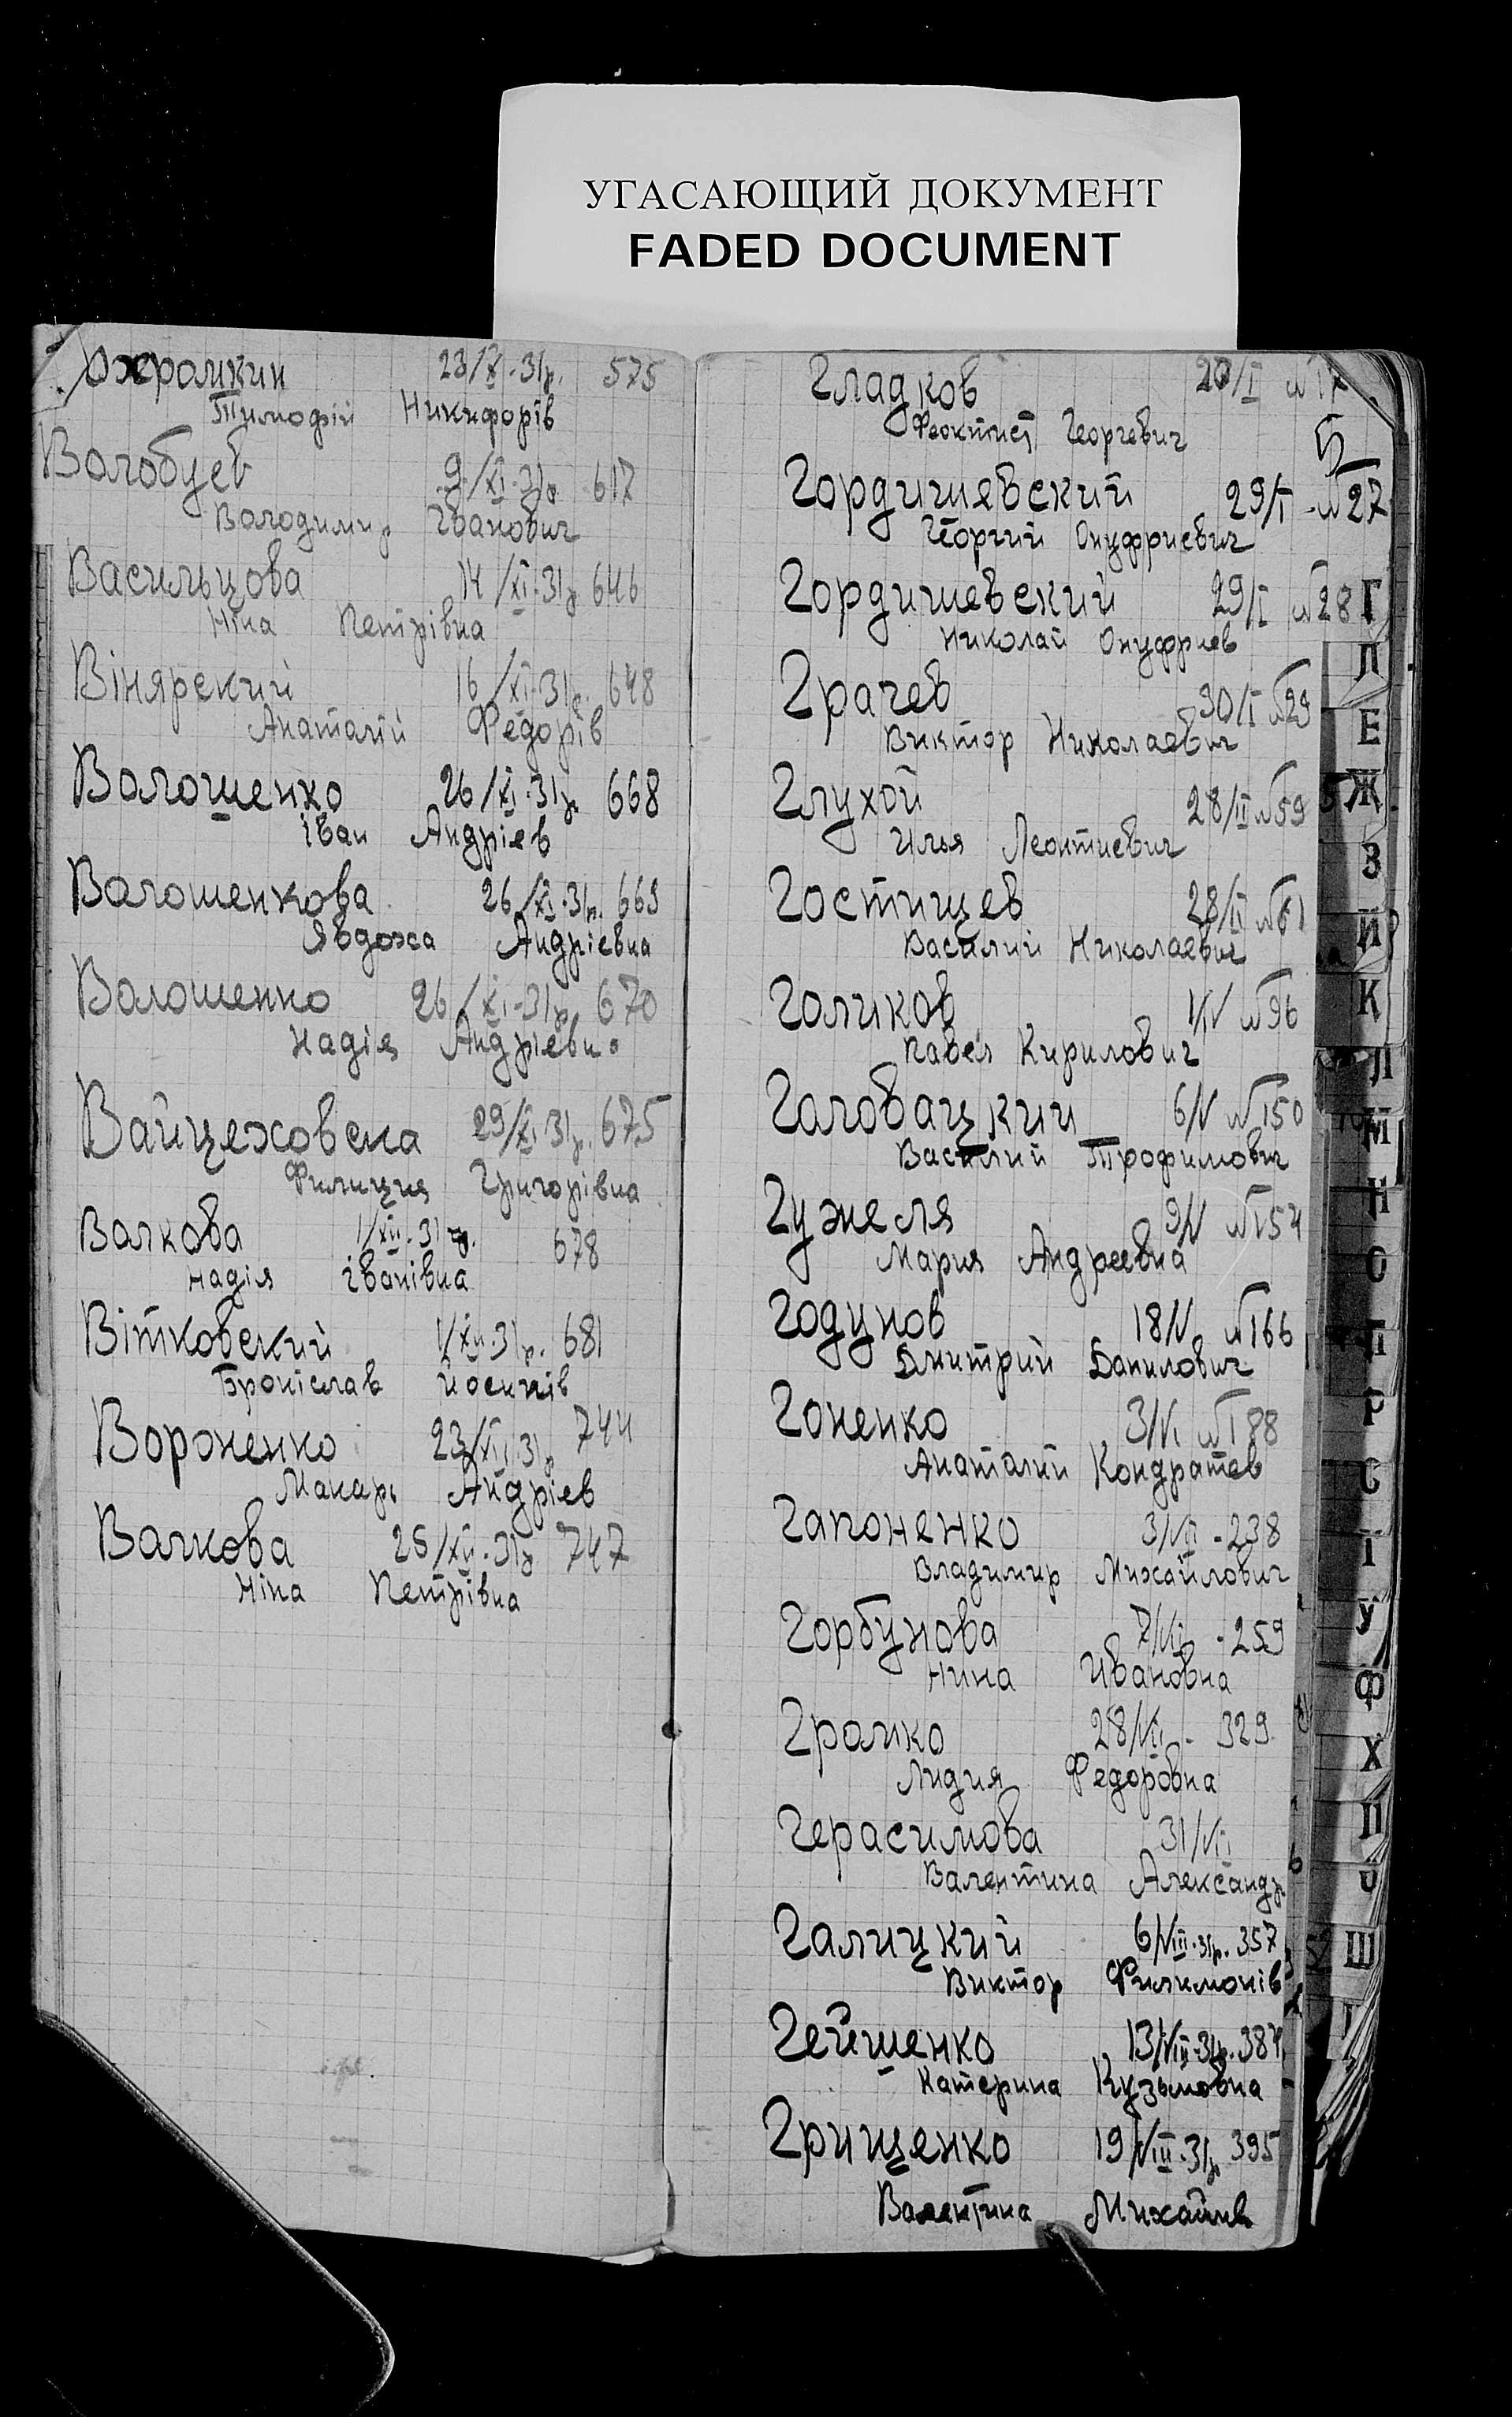 УГАСАЮЩИЙ ДОКУМЕНТ
FADED DOCUMENT
23/X-31р. 575
Тимофій Никифорів
Волобуев 9/XI-31р 617
Володимир Іванович
Васильцова 14/XI-31р 646
Ніна Петрівна
Вінярский 16/XI-31р. 648
Анаталій Федорів
Волошенко 26/XI-31р 668
Іван Андріев
Волошенкова 26/XI-31р. 669
Явдоха Андріевна
Волошенко 26/XI-31р. 670
Надія Андріевна
Вайцеховска 29/XI-31р. 675
Филиция Григорівна
Валкова 1/XII-31р. 678
Надія Іванівна
Вітковский 1/XII-31р. 681
Броніслав Йосипів
Вороненко 23/XII-31р 744
Макарь Андріев
Валкова 25/XII-31р 747
Ніна Петрівна
Гладков 20/I №17
Феоктист Георгевич
5
Гордишевский 29/I-№27
Георгий Онуфриевич
Гордишевский 29/I №28
Николай Онуфриев
Грачев 30/I №29
Виктор Николаевич
Глухой 28/II №59
Илья Леонтиевич
Гостищев 28/II №61
Василий Николаевич
Голиков 1/IV №96
Павел Кирилович
Головацкий 6/V №150
Василий Трофимович
Гужеля 9/V №154
Мария Андреевна
Годунов 18/V №166
Дмитрий Данилович
Гоненко 3/VI №188
Анаталий Кондратев
Гапоненко 3/VII -238
Владимир Михайлович
Горбунова 7/VII -259
Нина Ивановна
Громко 28/VII - 329
Лидия Федоровна
Герасимова 31/VII
Валентина Александр.
Галицкий 6/VIII-31р. 357
Виктор Филимонів
Гейшенко 13/VIII-31р. 387
Катерина Кузьмовна
Грищенко 19/VIII-31р 395
Валентина Михайлів
Г
Е
Ж
З
И
К
Л
М
Н
О
П
Р
С
Т
У
Ф
Х
Ц
Ч
Ш